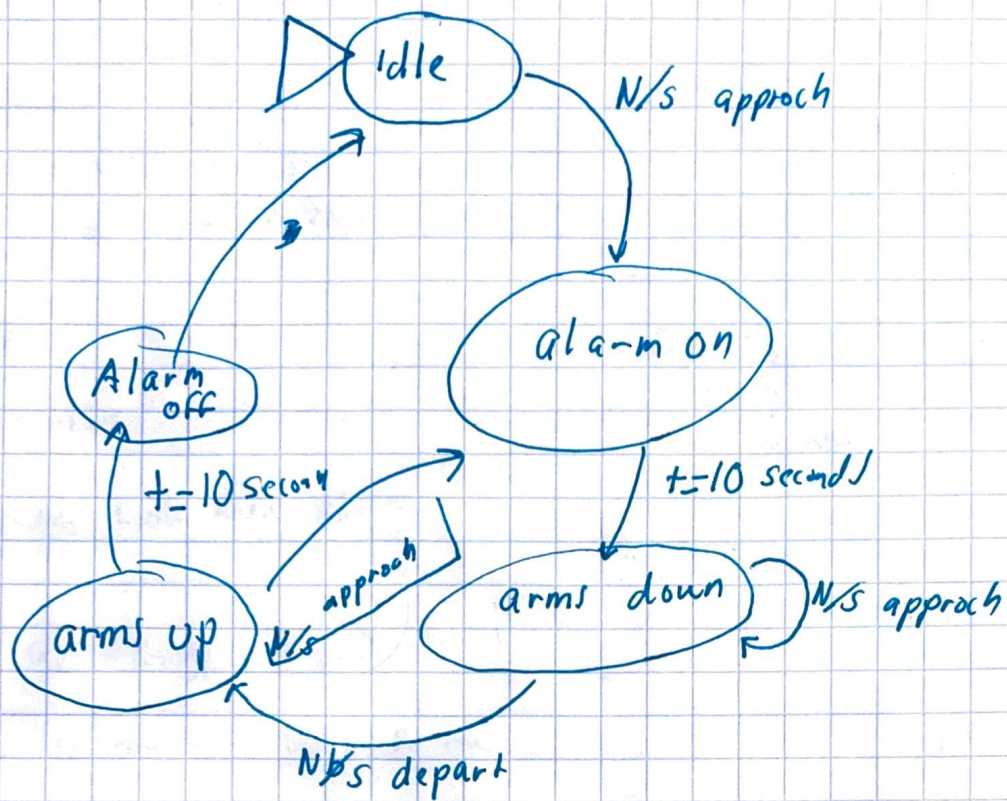 Idle
N/s approch
alarm on
Alarm
off
t=10 second
t=10 seconds
approch
N/s
arms down
N/s approch
arms up
N/s depart